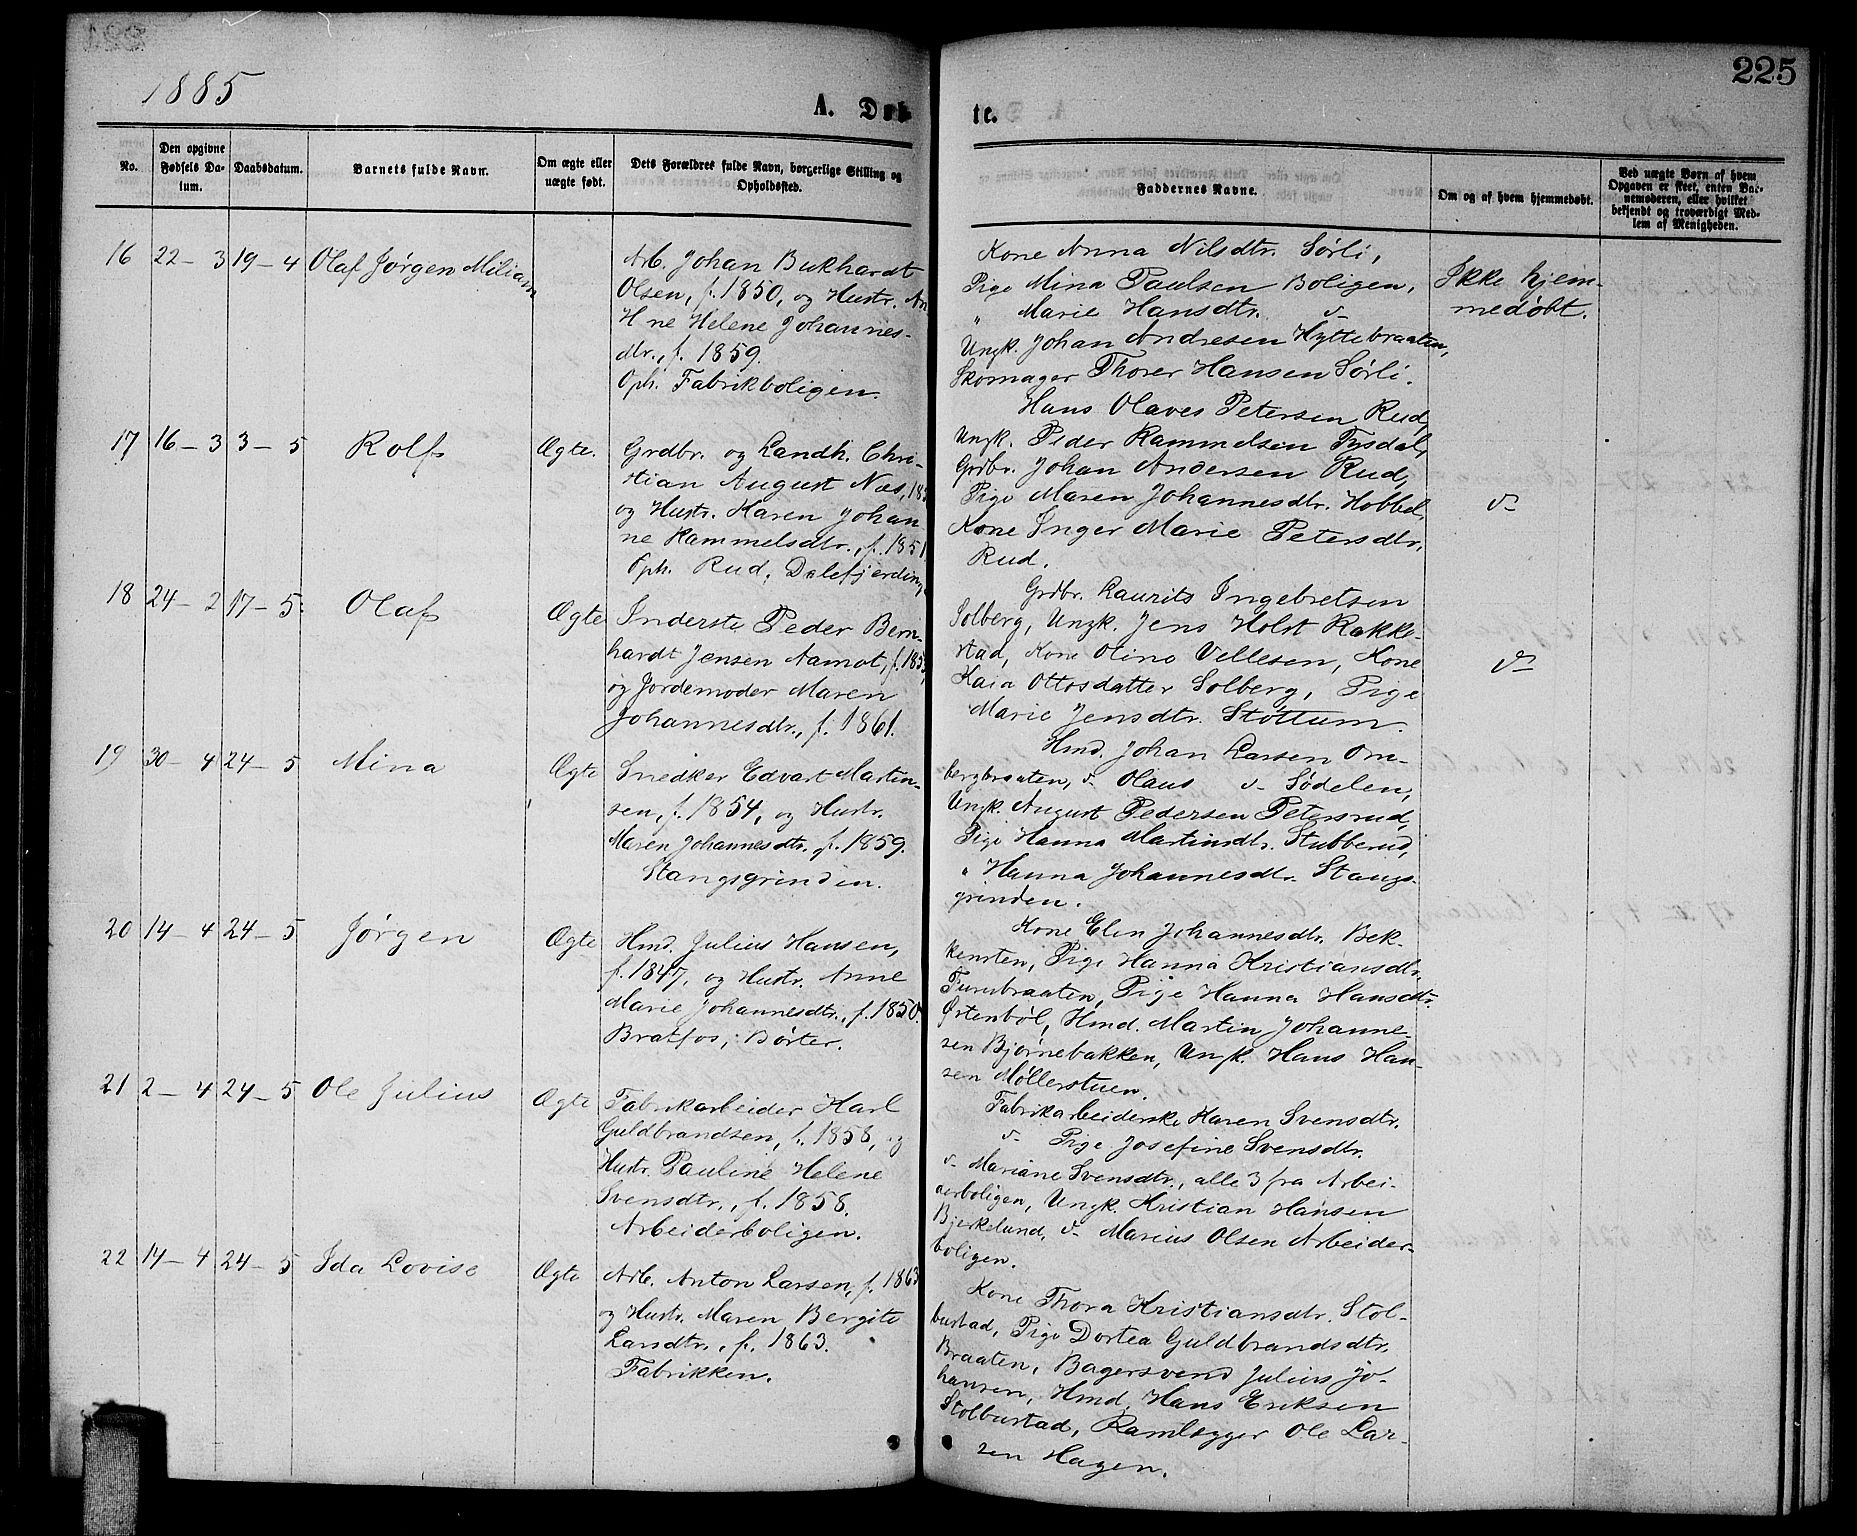 225
1885
A. Døb
te.
No.
Den opgivne Fødsels Datum.
Daabsdatum.
Barnets fulde Navn.
Om ægte eller uægte født.
Dets Forældres fulde Navn, borgerlige Stilling og Opholdssted.
Faddernes Navne.
Om og af hvem hjemmedøbt.
Ved uægte Børn af hvem Opgaven er skeet, enten Barnemoderen, eller hvilket bekjendt og troværdigt Medlem af Menigheden.
16 22-3 19-4 Olaf Jørgen Miliam
Arb. Johan Bukhardt
Olsen, f. 1850, og Hustr. An
H ne Helene Johannes-
dtr., f. 1859.
Oph. Fabrikboligen.
Kone Anna Nilsdtr. Sørli,
Pige Mina Paulsen Boligen,
" Marie Hansdtr. v-
Ungk. Johan Andresen Hyttebraaten,
Skomager Thorer Hansen Sørli.
Ikke hjem-
medøbt.
17 16-3 3-5 Rolf Ægte.
Grdbr. og Landh. Chri-
stian August Næs, 18
og Hustr. Karen Johan-
ne Rammelsdtr., f. 1851
Oph. Rud, Dalefjerding,
Hans Olaves Petersen Rud,
Ungk. Peder Rammelsen Tysdal,
Grdbr. Johan Andersen Rud,
Pige Maren Johannesdtr. Hobbel,
Kone Inger Marie Petersdtr.
Rud.
v-
18 24-2 17-5 Olaf Ægte
Inderste Peder Bern-
hardt Jensen Aamot, f. 185
og Jordemoder Maren
Johannesdtr., f. 1861.
Grdbr. Laurits Ingebretsen
Solberg, Ungk. Jens Holst Rakke-
stad, Kone Oline Vellesen, Kone
Kaia Ottosdatter Solberg, Pige
Marie Jensdtr. Støttum.
v-
19 30-4 24-5 Mina Ægte
Snedker Edvart Martin-
sen, f. 1854, og Hustr.
Maren Johannesdtr. f. 1859.
Stangsgrinden.
Hmd. Johan Larsen Om-
bergbraaten, v- Olaus v- Sødelen,
Ungk. August Pedersen Petersrud,
Pige Hanna Martinsdtr. Stubberud,
" Hanna Johannesdtr. Stangs-
grinden.
20 14-4 24-5 Jørgen Ægte
Hmd. Julius Hansen,
f. 1847, og Hustr. Anne
Marie Johannesdtr., f. 1850.
Bratfos, Børter.
Kone Elen Johannesdtr. Bek-
kensten, Pige Hanna Kristiansdtr.
Furubraaten, Pige Hanna Hansdtr.
Østenbøl, Hmd. Martin Johanne-
sen Bjørnebakken, Ungk. Hans Han-
sen Møllerstuen.
21 2-4 24-5 Ole Julius Ægte
Fabrikarbeider Karl
Guldbrandsen, f. 1858, og
Hustr. Pauline Helene
Svensdtr., f. 1858.
Arbeiderboligen.
Fabrikarbeiderske Karen Svensdtr.
v- Pige Josefine Svensdtr.
v- Mariane Svensdtr., alle 3 fra Arbei-
derboligen, Ungk. Kristian Hansen
Bjerkelund, v- Marius Olsen Arbeider-
boligen.
22 14-4 24-5 Ida Lovise Ægte
Arb. Anton Larsen, f. 1863
og Hustr. Maren Bergite
Larsdtr., f. 1863.
Fabrikken.
Kone Thora Kristiansdtr. Stol-
bustad, Pige Dortea Guldbrandsdtr.
Braaten, Bagersvend Julius Jo-
hansen, Hmd. Hans Eriksen
Stolbustad, Ramlægger Ole Lar-
sen Hagen.